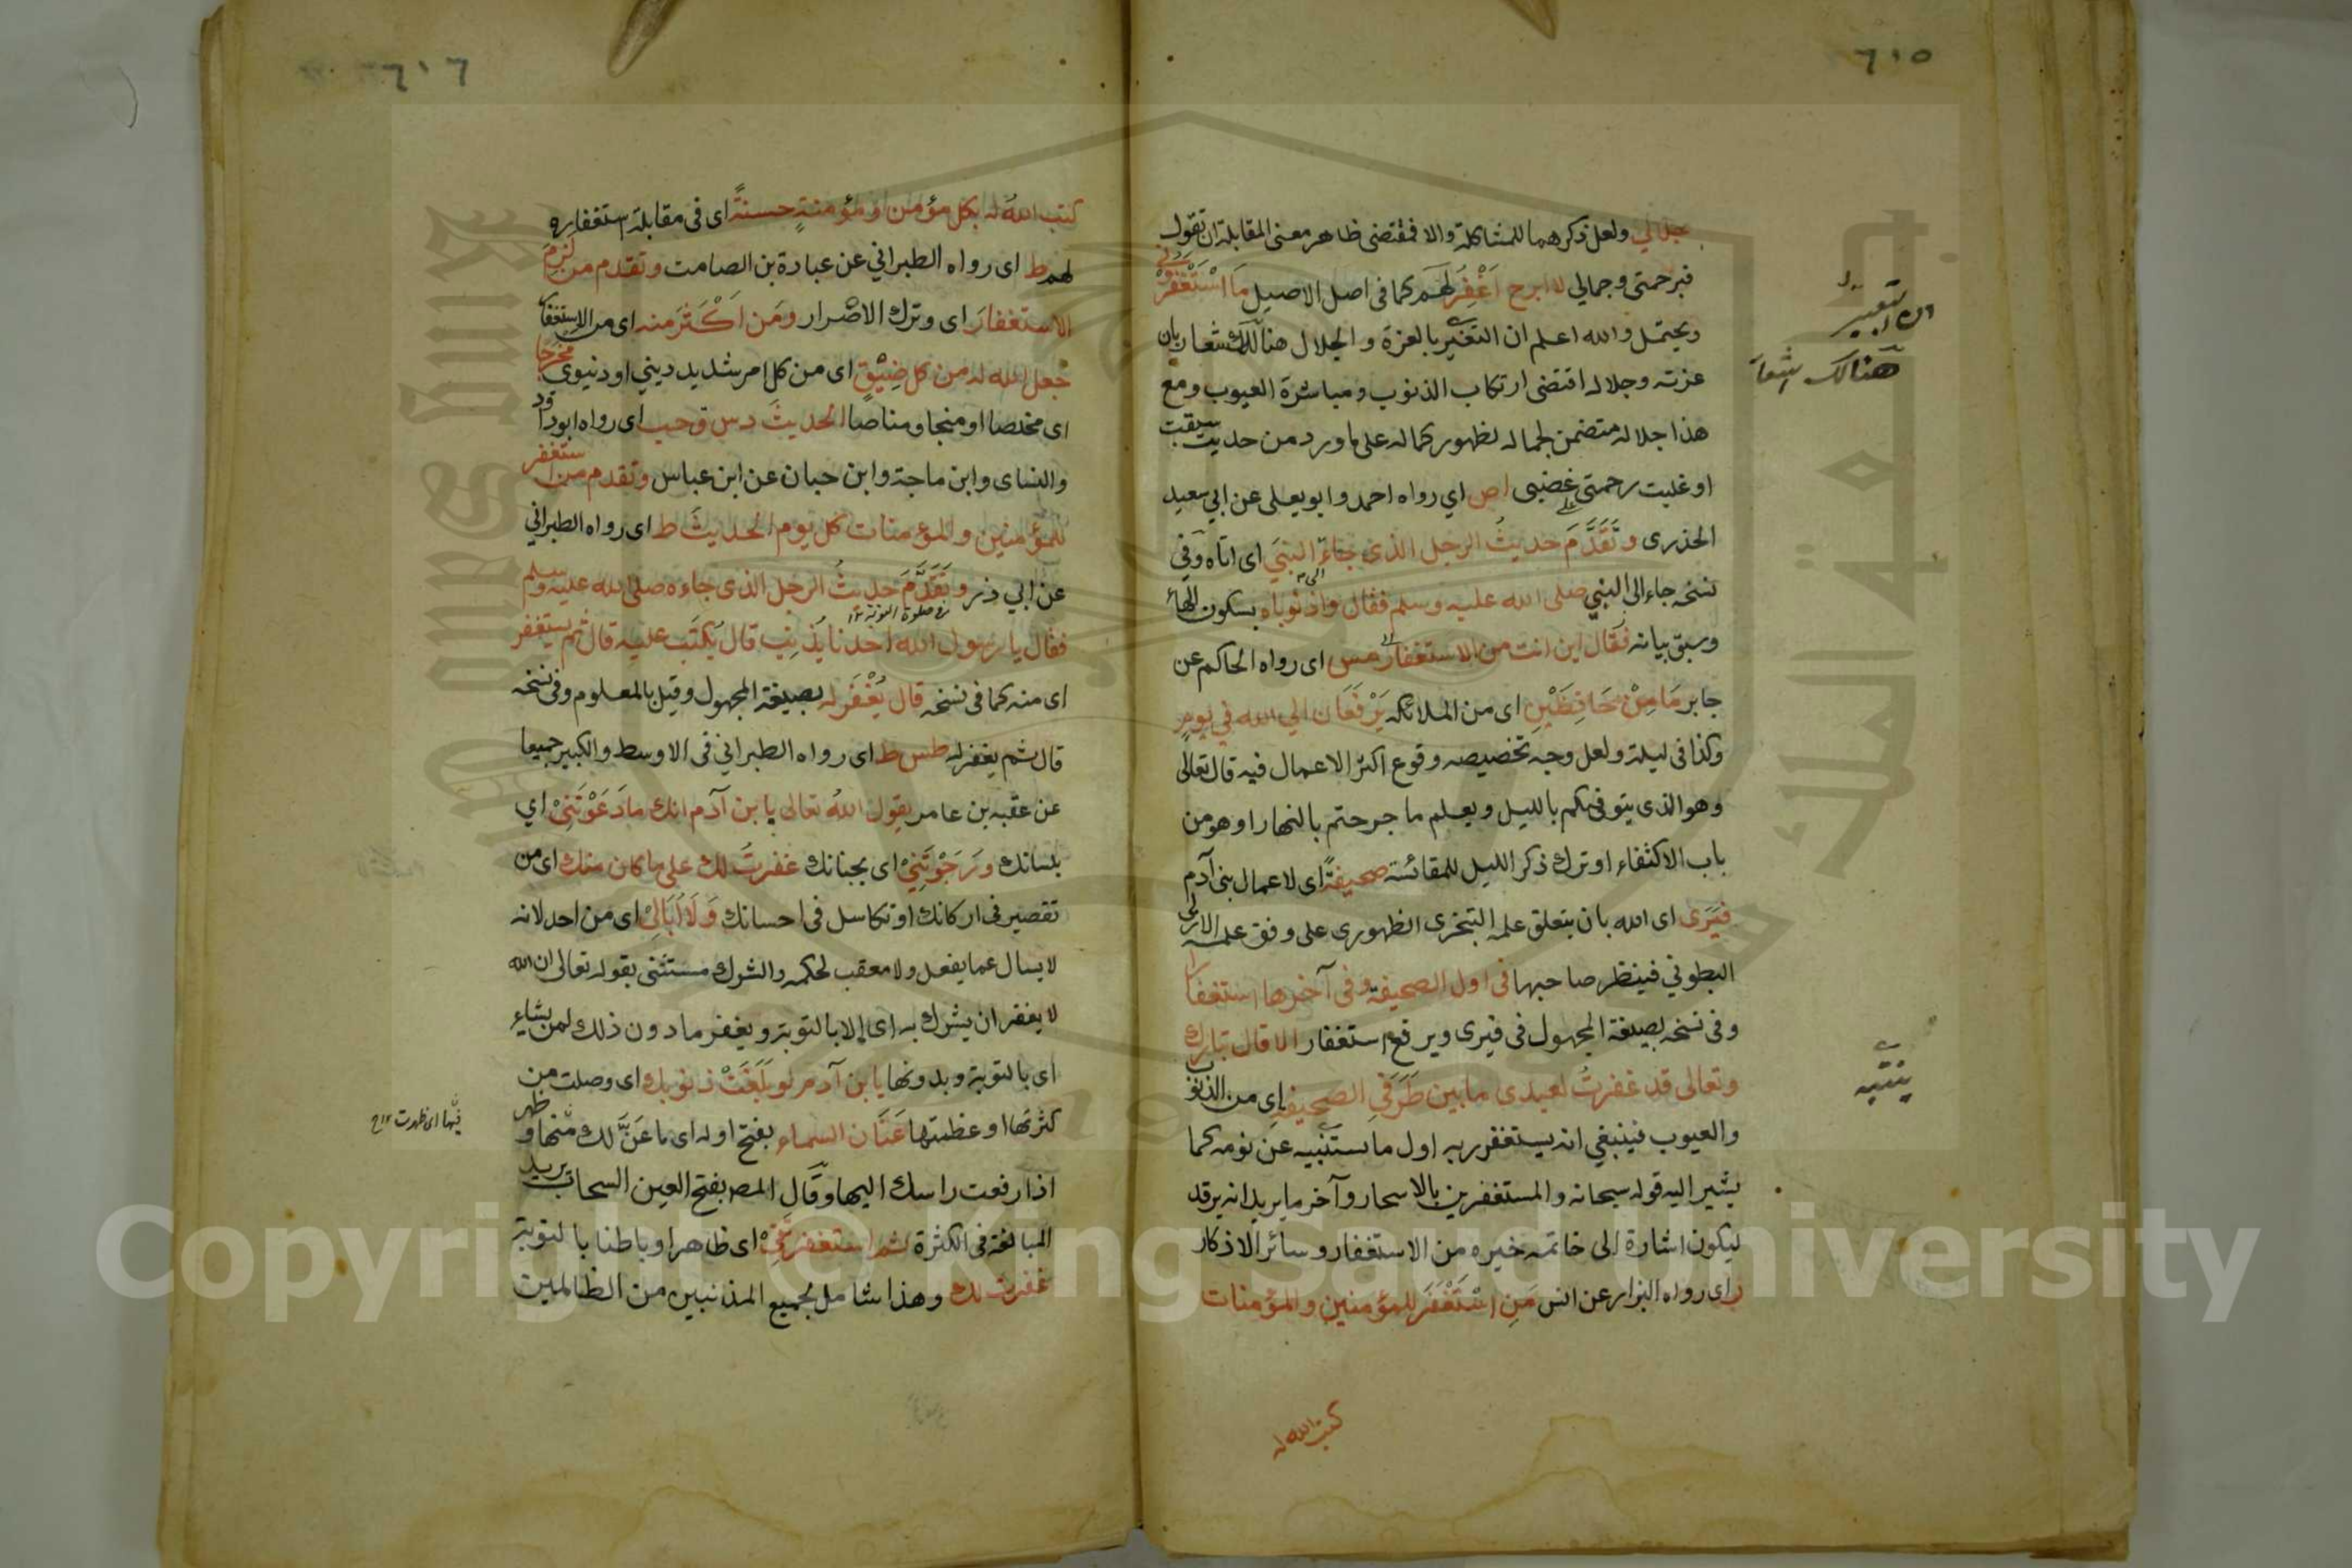 ٦١٥
جلالي ولعل ذكرهما للمشاكلة والا فمقتضى ظاهر معنى المقابلة ان تقول
فبرحمتى وجمالي لا ابرح اَغْفِرُ لهم كما فى اصل الاصيل مَا اسْتَغْفَرُوْنِي
ويحتمل والله اعلم ان التعبير بالعزة والجلال هنالك شعار بان
عزته وجلاله اقتضى ارتكاب الذنوب ومباشرة العيوب ومع
هذا جلاله متضمن لجماله لظهور كماله على ما ورد من حديث سبقت
او غلبت رحمتى غضبى اص اي رواه احمد وابو يعلى عن ابي سعيد
الخذرى وتَقَدَّمَ حديثُ الرجل الذى جاءَ النبيَ اى اتاه وفي
نسخه جاء الى النبي صلى الله عليه وسلم فقال واذنوباه بسكون الهاء
وسبق بيانه فقال اين انت من الاستغفار مس اى رواه الحاكم عن
جابر مَا مِنْ حَافِظَيْنِ اى من الملائكه يَرْفَعَان الي الله في يومٍ
وكذا فى ليلة ولعل وجه تخصيصه وقوع اكثر الاعمال فيه قال تعالى
وهو الذى يتوفىكم بالليل ويعلم ما جرحتم بالنهار او هو من
باب الاكتفاء او ترك ذكر الليل للمقائسة صحيفةً اى لاعمال بنى آدم
فيَرَى اى الله بان يتعلق علمه التنجزى الظهورى على وفق علمه الازلى
البطوني فينظر صاحبها فى اول الصحيفة وفى آخرها استغفارا
وفى نسخه بصيغة المجهول فى فيرى ويرفع استغفار الا قال تبارك
وتعالى قد غفرتُ لعبدى ما بين طَرَفَيِ الصحيفةِ اى من الذنوب
والعيوب فينبغي انه يستغفر ربه اول ما يستنبيه عن نومه كما
يشير اليه قوله سبحانه والمستغفرين بالاسحار وآخر ما يريد انه يرقد
ليكون اشارة الى خاتمه خيره من الاستغفار وسائر الاذكار
ر اى رواه البزار عن انس مَنِ اسْتَغْفَرَ للمؤمنين والمؤمنات
كتب الله له
التعبير
هنالك اشعار
ينتبه
٦١٦
كتب اللهُ له بكل مؤمن او مؤمنةٍ حسنةً اى فى مقابلة استغفاره
لهم ط اى رواه الطبراني عن عبادة بن الصامت وتقدم من لَزِمَ
الاستغفارَ اى وترك الاصرار ومَن اَكْثَرَ منه اى من الاستغفار
جعل الله له من كل ضِيْقٍ اى من كل امر شديد ديني او دنيوى مَخرَجًا
اى مخلصا او منجا ومناصا الحديثَ د س ق حب اى رواه ابو داود
والنساى وابن ماجة وابن حبان عن ابن عباس وتقدم من استغفر
للمؤمنين والمؤمنات كل يوم الحديثَ ط اى رواه الطبراني
عن ابي ذر وتَقَدَّمَ حديثُ الرجل الذى جاءه صلى الله عليه وسلم
فى صلوة التوبة ١٢
فقال يا رسول الله احدنا يُذْنِب قال يُكتَب عليه قال ثم يستغفر
اى منه كما فى نسخه قال يُغْفَر له بصيغة المجهول وقيل بالمعلوم وفى نسخه
قال ثم يغفر له طس ط اى رواه الطبراني فى الاوسط والكبير جميعا
عن عقبه بن عامر يقول اللهُ تعالى يا بن آدم انك ما دَعَوْتَنِىْ اي
بلسانك ورَجَوْتَنِىْ اى بجنانك غفرتُ لك على ما كان منك اى من
تقصير فى اركانك او تكاسل فى احسانك وَلَا اُبَالِىْ اى من احد لانه
لا يسال عما يفعل ولا معقب لحكمه والشرك مستثنى بقوله تعالى ان الله
لا يغفر ان يشرك به اى الا بالتوبة ويغفر ما دون ذلك لمن يشاء
اى بالتوبة وبدونها يا بن آدم لو بَلَغَتْ ذنوبك اى وصلت من
كثرتها او عظمتها عَنَان السماء بفتح اوله اى ما عَنَّ لك منها وظهر
اذا رفعت راسك اليها وقال المص بفتح العين السحاب يريد
المبالغة فى الكثرة ثم استغفرتَنِىْ اى ظاهرا وباطنا بالتوبة
غفرت لك وهذا شامل لجميع المذنبين من الظالمين
فيها اى ظهرت ١٢ح
Copyright © King Saud University